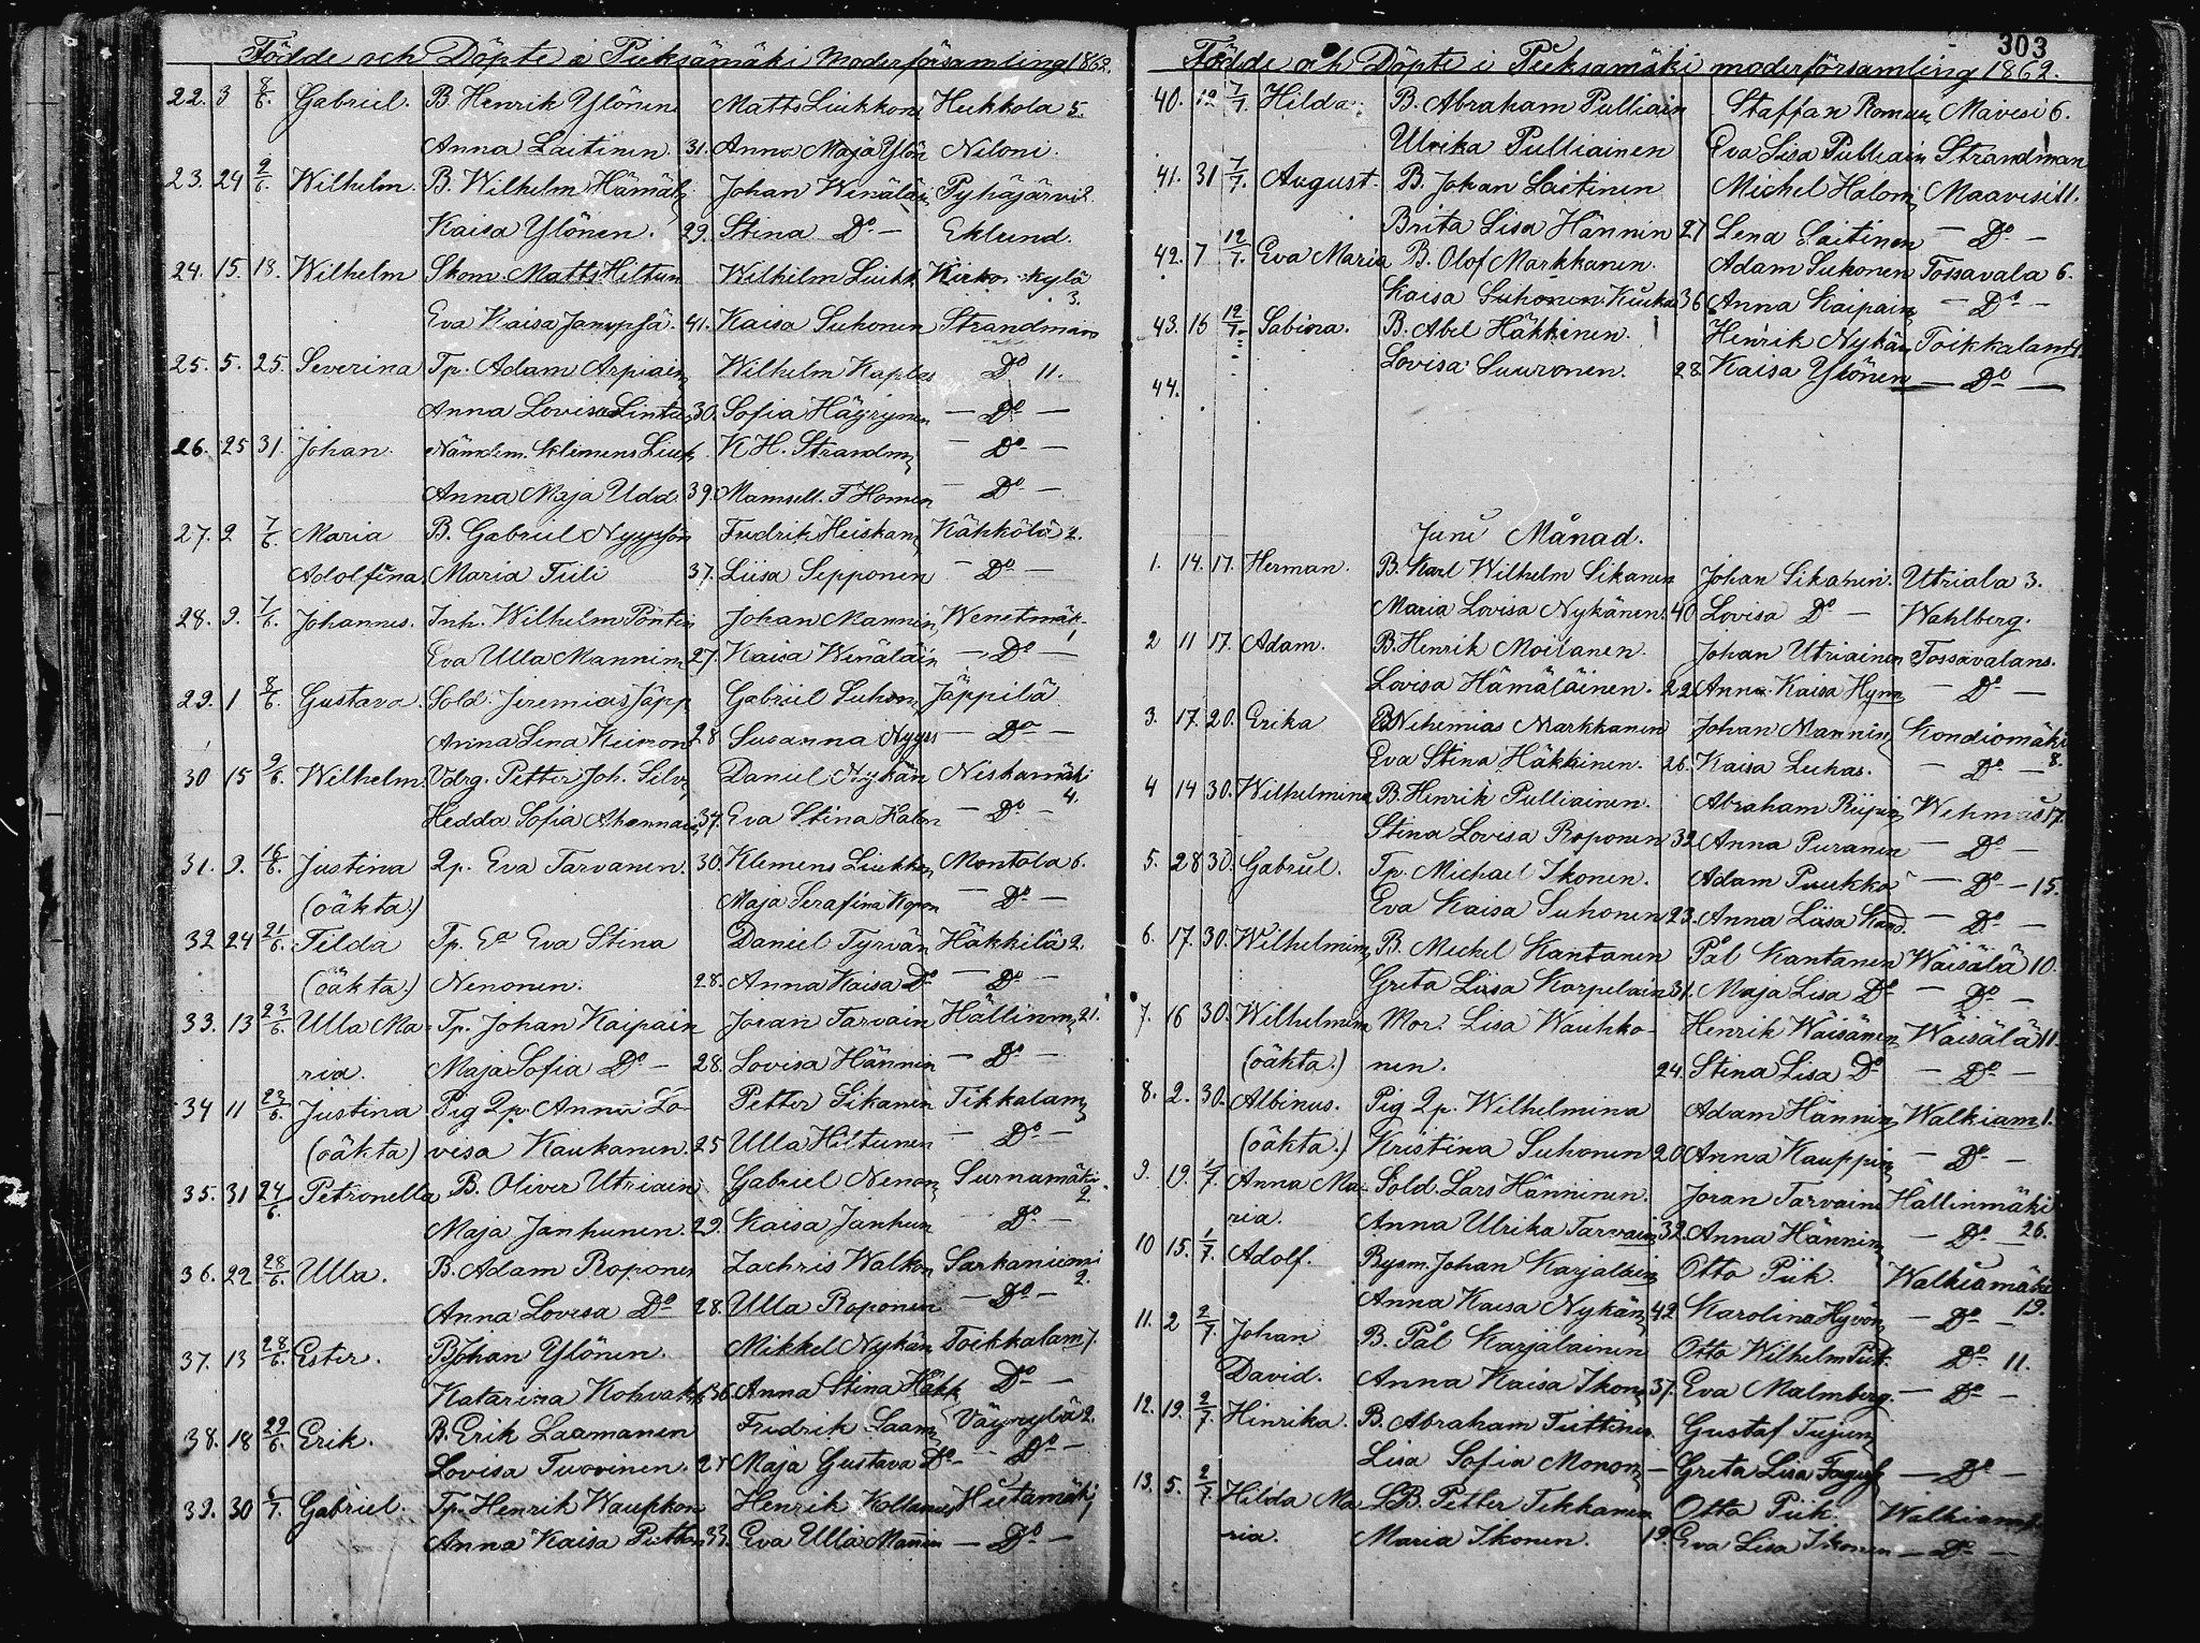 303
Födde och Döpte i Pieksämäki Moderförsamling 1862.
22. 3 8/6. Gabriel. B. Henrik Ylönen Matts Liukkon Heikkola 5.
Anna Laitinen. 31. Anna Maja Ylön Niloni.
23. 24 9/6. Wilhelm. B. Wilhelm Hämäl Johan Winäläin Pyhäjärvi 2.
Kaisa Ylönen. 29. Stina Do - Eklund.
24. 15. 18. Wilhelm Skom. Matts Hiltun Wilhelm Liukk Kirkonkylä
3.
Eva Kaisa 41. Kaisa Suhonen Strandman
25. 5. 25. Severina Tp. Adam Arpiain Wilhelm Kaplas Do 11.
Anna Lovisa Lintu 30. Sofia Häyrynen - Do -
26. 25 31. Johan. Nämdem. Klemens Liuk K H. Strandm - Do -
Anna Maja Udd 39. Mamsell. F Homen - Do -
27. 2 7/6 Maria B. Gabriel Nyyssön Fredrik Heiskan Kähkölä 2.
Adolfina. Maria Tiili 37. Liisa Sepponen - Do -
28. 9. 7/6. Johannes. Inh. Wilhelm Pöntin Johan Mannin Wenetmäk.
Eva Ulla Mannin 27. Kaisa Winäläin - Do -
29. 1 8/6 Gustava. Sold. Jeremias Jäpp Gabriel Suhon Jäppilä
Anna Lena Keinon 28 Susanna Nyyss - Do -
30 15 9/6. Wilhelm. Vdrg. Petter Joh. Silv Daniel Nykän Niskamäki
4.
Hedda Sofia Ahonnain 37. Eva Stina Kalon - Do -
31. 9. 16/6. Justina 2p. Eva Tarvanen. 30. Klemens Liukkon Montola 6.
(oäkta.) Maja Serafina Kopon - Do -
32 24 21/6. Tilda Tp. Ea Eva Stina Daniel Tyrvän Häkkilä 2.
(oäkta.) Nenonen. 28. Anna Kaisa Do - Do -
33. 13 23/6. Ulla Ma- Tp. Johan Kaipain Joran Tarvain Hällinm 21.
ria. Maja Sofia Do - 28. Lovisa Hännin - Do -
34 11 23/6. Justina Pig 2p. Anna Lo- Petter Sikanen Tikkalam 3
(oäkta) visa Kaukanen. 25 Ulla Hiltunen - Do -
35. 31 24/6. Petronella B. Oliver Utriain Gabriel Nenon Surnamäki
2.
Maja Janhunen. 29. Kaisa Janhun - Do -
36. 22 28/6. Ulla. B. Adam Roponen Zachris Walkon Sarkaniemi
2.
Anna Lovisa Do 28. Ulla Roponen - Do -
37. 13 28/6. Ester. B Johan Ylönen. Mikkel Nykän Toikkalam 7.
Katarina Kohvak 36. Anna Stina Häkk Do -
38. 18 29/6. Erik. B. Erik Laamanen Fredrik Laam Väyrylä 2.
Lovisa Tuovinen. 27 Maja Gustava Do - Do -
39. 30 /7. Gabriel. Tp. Henrik Waupkon Henrik Kollanus Hietamäki
Anna Kaisa Pitkän 33. Eva Ulla Mannin - Do -
Födde och Döpte i Pieksamäki moderförsamling 1862.
40. 12 7/7. Hilda. B. Abraham Pulliain Staffan Romun Mavesi 6.
Ulrika Pulliainen Eva Lisa Pulliain Strandman
41. 31 7/7. August. B. Johan Laitinen Michel Halon Maavesi 11.
Brita Lisa Hännin 27 Lena Laitinen - Do -
42. 7 12/7. Eva Maria B. Olof Markkanen. Adam Suhonen Tossavala 6.
Kaisa Suhonen 36 Anna Kaipain - Do -
43. 16 12/7. Sabina. B. Abel Häkkinen. Henrik Nykän Toikkalam 4.
Lovisa Suuronen. 28. Kaisa Ylönen - Do -
44.
Juni Månad.
1. 14. 17. Herman. B. Karl Wilhelm Sikanen Johan Sikanen. Utriala 3.
Maria Lovisa Nykänen. 40 Lovisa Do - Wahlberg.
2 11 17. Adam. B. Henrik Moilanen. Johan Utriainen Tossavalans.
Lovisa Hämäläinen. 22 Anna Kaisa Hynn - Do -
3. 17. 20. Erika B Nehemias Markkanen Johan Mannin Kondiomäki
8.
Eva Stina Häkkinen. 26. Kaisa Luhas. - Do -
4 14 30. Wilhelmina B. Henrik Pulliainen. Abraham Riipin Wehmas 17.
Stina Lovisa Roponen 32 Anna Puranen - Do -
5. 28 30. Gabriel. Tp. Michael Ikonen. Adam Puukko - Do - 15.
Eva Kaisa Suhonen 23. Anna Liisa Kand. - Do -
6. 17. 30. Wilhelmin B. Michel Kantanen Pål Kantanen Wäisälä 10.
Greta Liisa Karpelain 31. Maja Lisa Do - Do -
7. 16 30. Wilhelmin Mor. Lisa Wauhko- Henrik Wäisänen Wäisälä 11.
(oäkta.) nen. 24. Stina Lisa Do - Do -
8. 2. 30. Albinus. Pig 2p. Wilhelmina Adam Hännin Walkiam 1.
(oäkta.) Kristina Suhonen 20 Anna Kauppin - Do -
9. 19. 1/7 Anna Ma- Sold. Lars Hänninen. Joran Tarvain Hällinmäki
26.
ria. Anna Ulrika Tarvain 32. Anna Hännin - Do -
10 15. 1/7. Adolf. Bysm. Johan Karjalain Otto Piik. Walkiamäki
19.
Anna Kaisa Nykän 42 Karolina Hyvön - Do -
11. 2 2/7. Johan B. Pål Karjalainen Otto Wilhelm Piik. Do 11.
David. Anna Kaisa Ikon 37. Eva Malmberg. - Do -
12. 19. 2/7. Hinrika. B. Abraham Tiittinen. Gustaf Tujun
Lisa Sofia Monon - Greta Lisa - Do -
13. 5. 2/7. Hilda Ma- LB. Petter Tikkanen Otto Piik. Walkiam
ria. Maria Ikonen. 19. Eva Lisa Ikonen - Do -